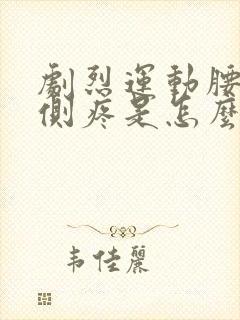 劇烈運動腰
側疼是怎麼
韦佳麗